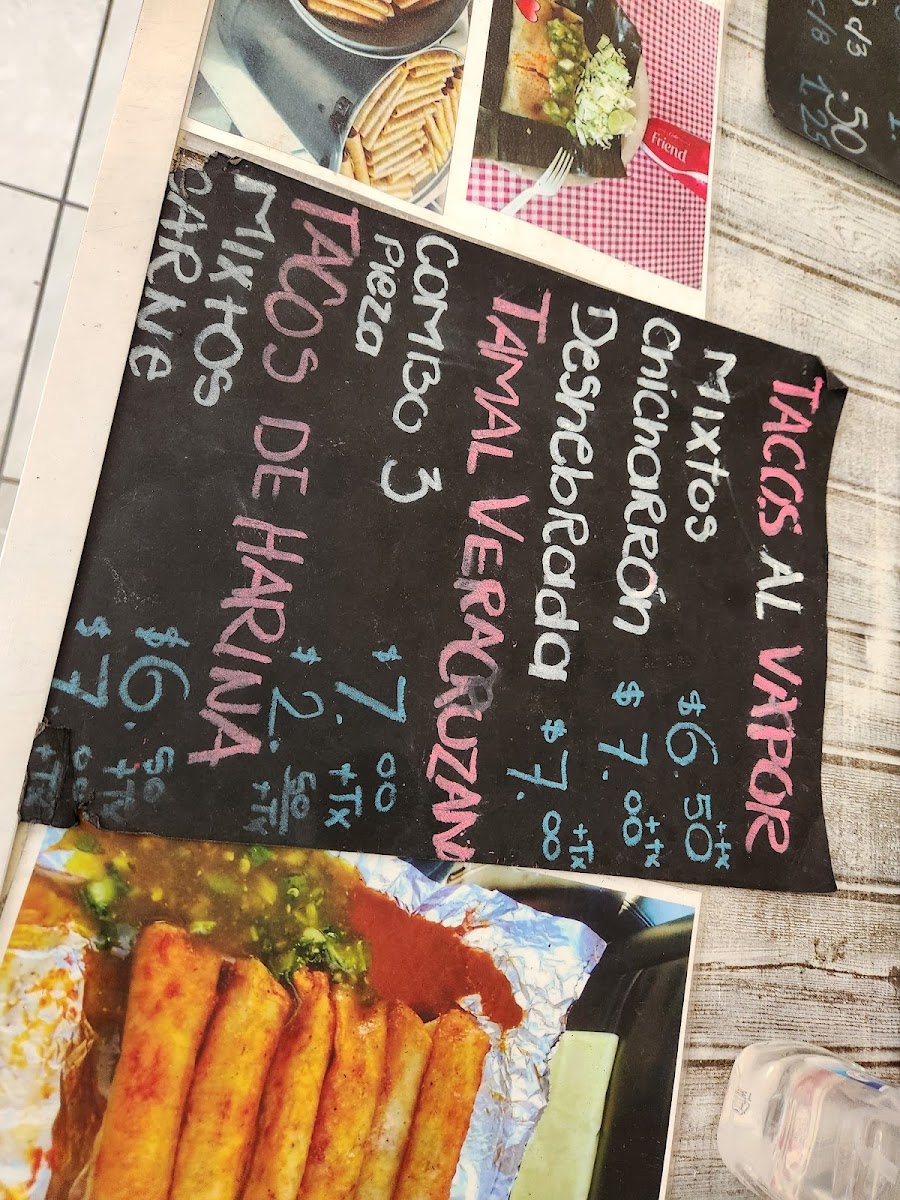 TACOS AL VAPOR
Mixtos $6.50 +tx
Chicharrón $7.00 +tx
Deshebrada $7.00 +Tx
TAMAL VERACRUZAN
Combo 3 $7.00 +Tx
Pieza $2.50 +Tx
TACOS DE HARINA
Mixtos $6.50 +Tx
CARNE $7.00 +Tx
Friend
.50